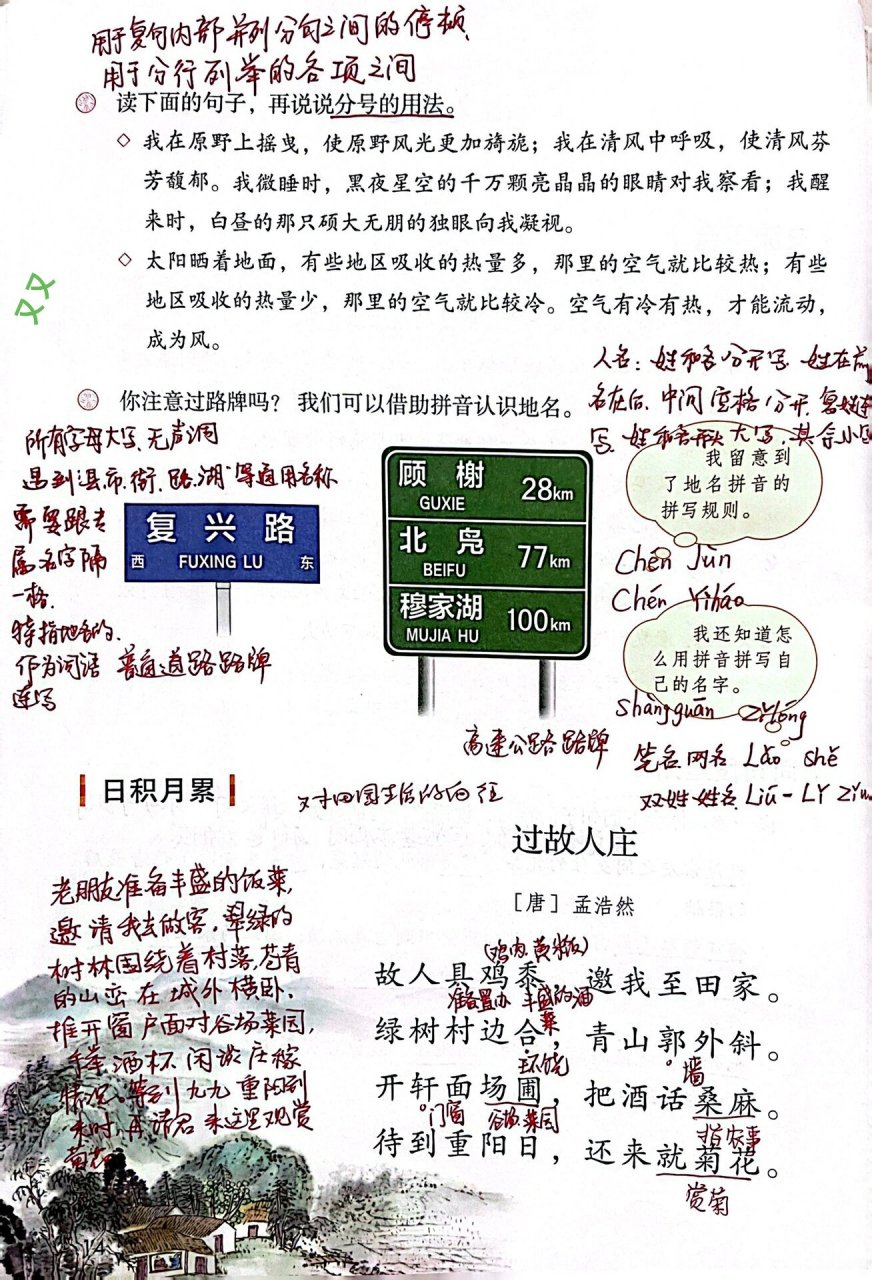 用于复句内部并列分句之间的停顿
用于分行列举的各项之间
读下面的句子，再说说分号的用法。
◇ 我在原野上摇曳，使原野风光更加旖旎；我在清风中呼吸，使清风芬
芳馥郁。我微睡时，黑夜星空的千万颗亮晶晶的眼睛对我察看；我醒
来时，白昼的那只硕大无朋的独眼向我凝视。
◇ 太阳晒着地面，有些地区吸收的热量多，那里的空气就比较热；有些
地区吸收的热量少，那里的空气就比较冷。空气有冷有热，才能流动，
成为风。
人名：姓和名分开写 姓在前
你注意过路牌吗？我们可以借助拼音认识地名。
名在后、中间空格分开、复姓连
写、姓和名开头大写，其余小写
所有字母大写、无声调
遇到“县、市、街、路、湖”等通用名称
需要跟专
属名字隔
一格.
特指地名的、
作为词语
连写
复兴路
西 FUXING LU 东
普通道路路牌
顾榭 28km
GUXIE
北凫 77km
BEIFU
穆家湖 100km
MUJIA HU
高速公路路牌
我留意到
了地名拼音的
拼写规则。
Chén Jūn
Chén Yīháo
我还知道怎
么用拼音拼写自
己的名字。
shàngguān zǐlóng
笔名网名 Lǎo shě
双姓姓名 Liú-Lǐ
日积月累
对田园生活的向往
过故人庄
［唐］孟浩然
老朋友准备丰盛的饭菜，
邀请我去做客，翠绿的
树林围绕着村落，苍青
的山峦在城外横卧.
推开窗户面对谷场菜园，
手举酒杯闲谈庄稼
情况。等到九九重阳到
来时，再请君来这里观赏
菊花
(鸡肉、黄米饭)
故人具鸡黍，邀我至田家。
准备置办 丰盛的酒菜
绿树村边合，青山郭外斜。
环绕 墙
开轩面场圃，把酒话桑麻。
门窗 谷场、菜园 指农事
待到重阳日，还来就菊花。
赏菊
14